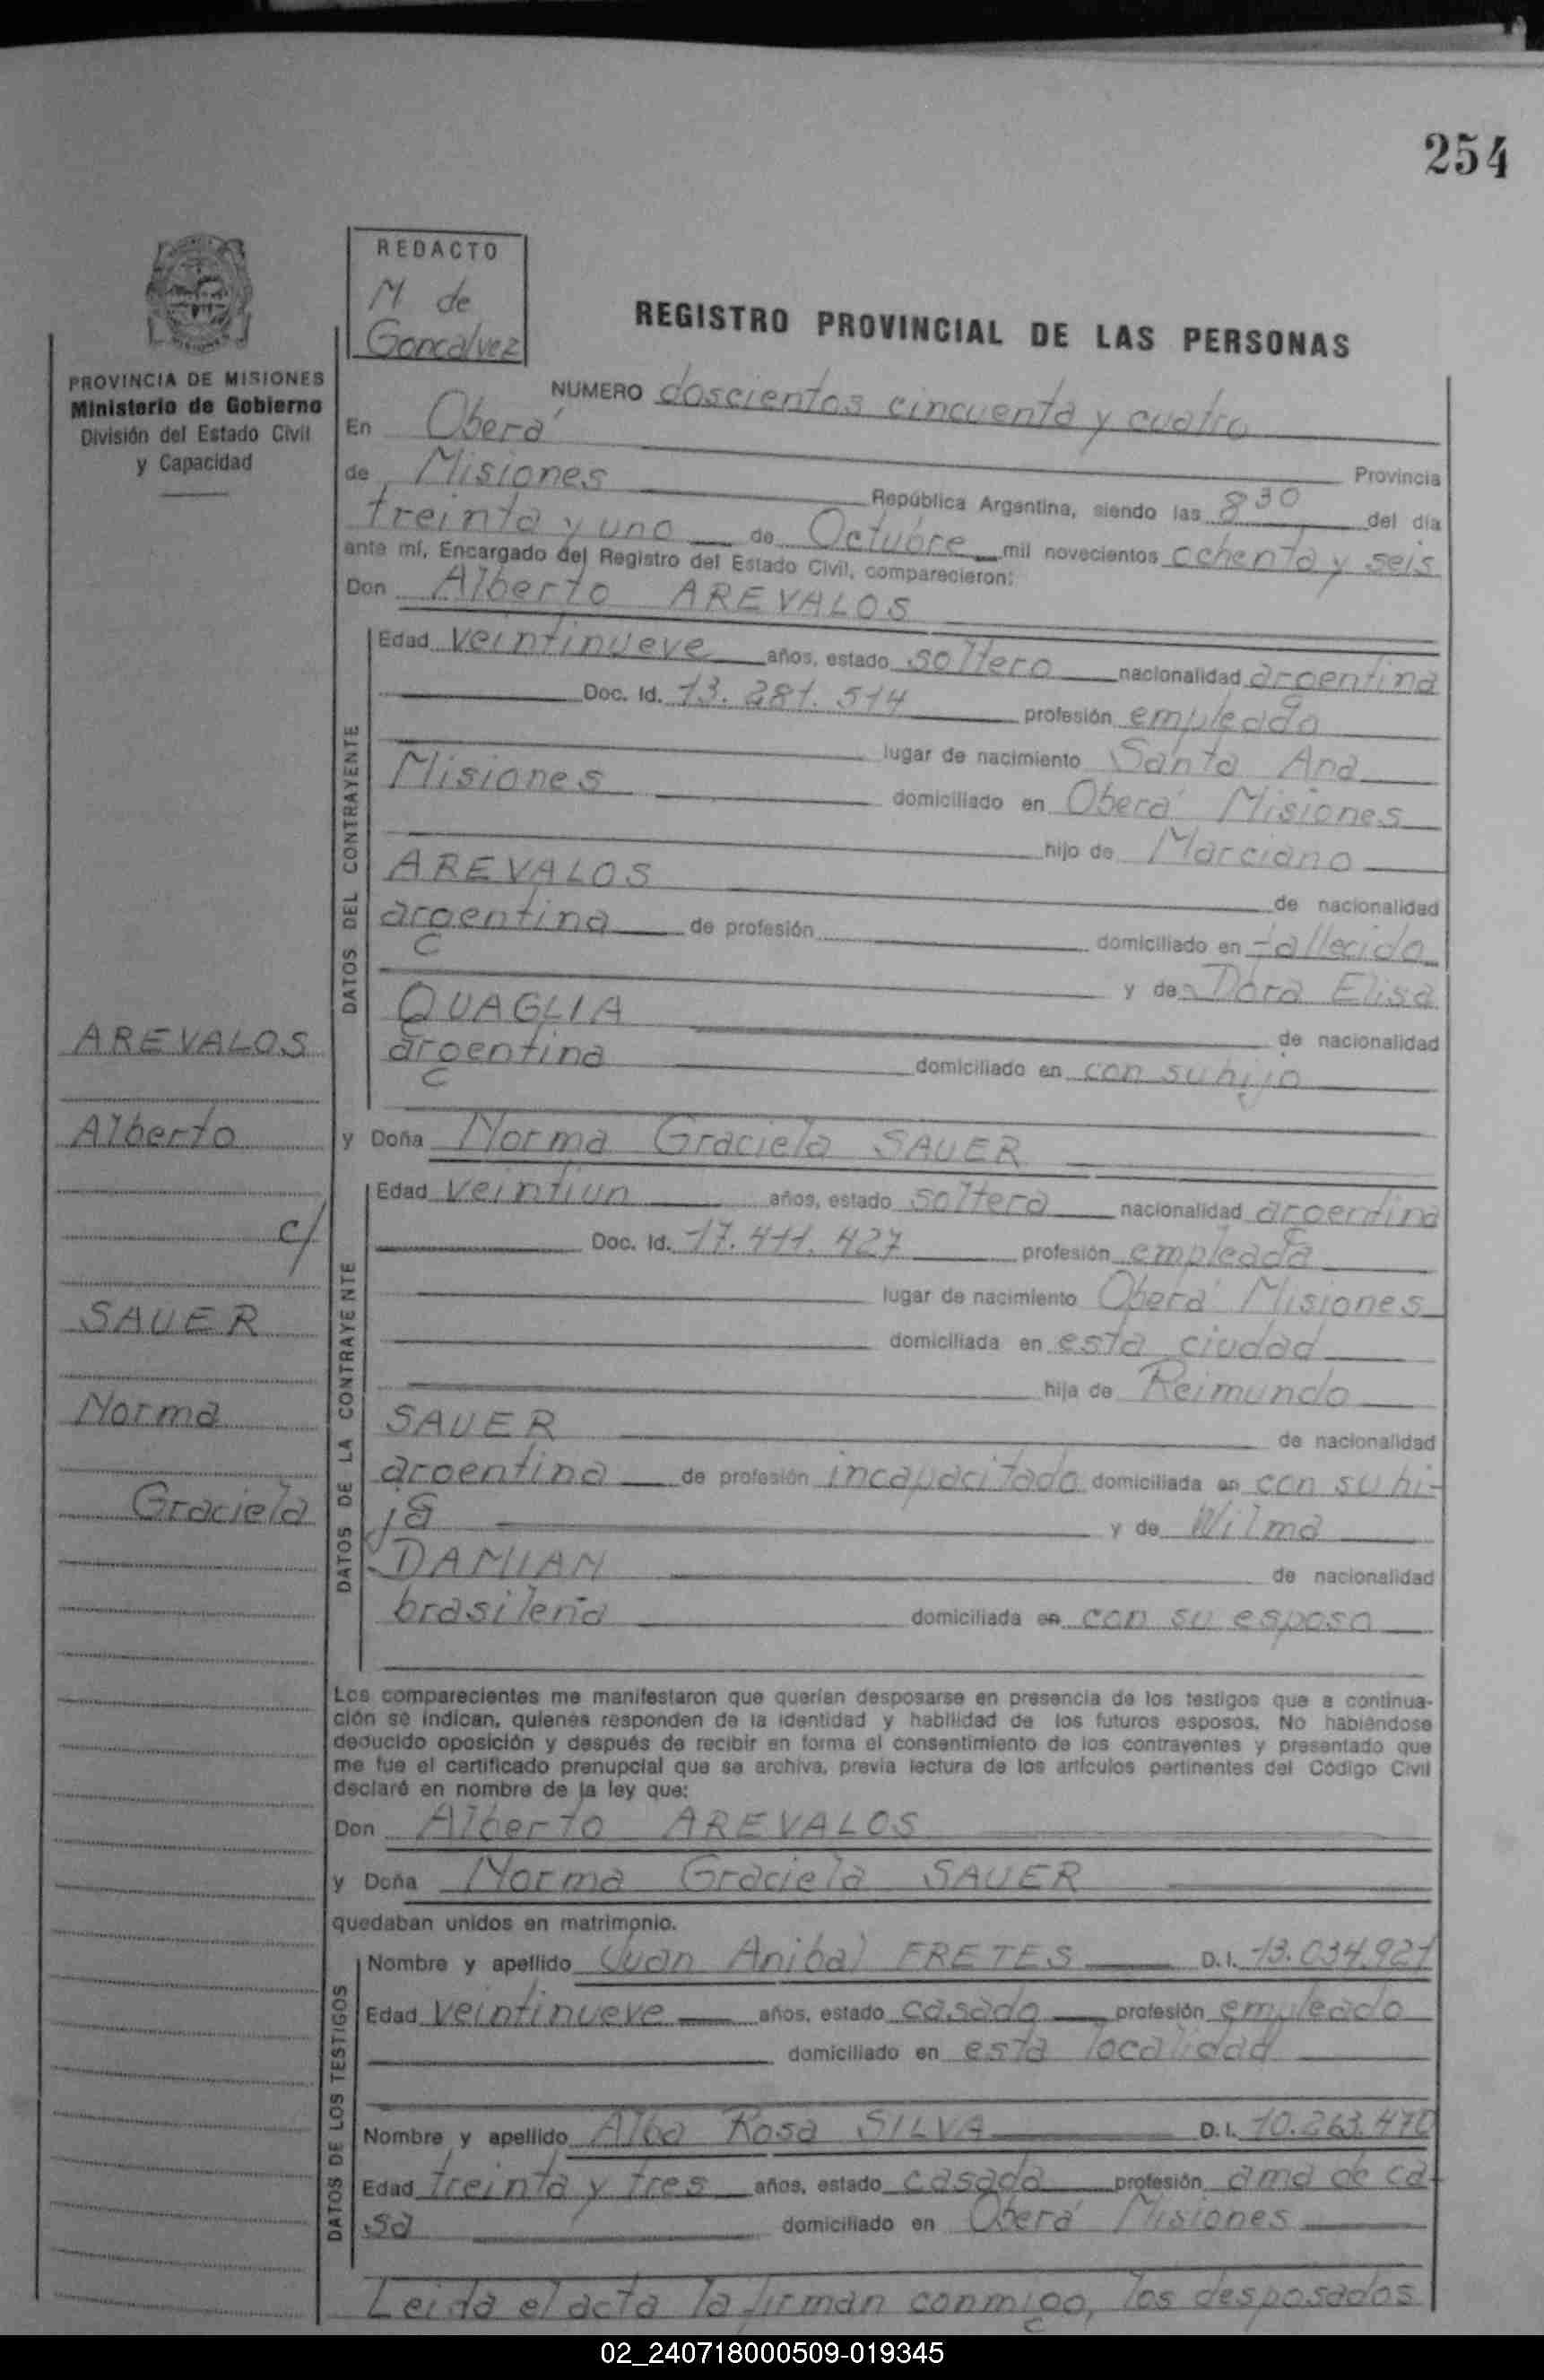 254
REDACTO
M de
Goncalvez
REGISTRO PROVINCIAL DE LAS PERSONAS
PROVINCIA DE MISIONES
Ministerio de Gobierno
División del Estado Civil
y Capacidad
NUMERO doscientos cincuenta y cuatro
En Oberá Provincia
de Misiones República Argentina, siendo las 8 30 del día
treinta y uno de Octubre mil novecientos ochenta y seis
ante mí, Encargado del Registro del Estado Civil, comparecieron:
Don Alberto AREVALOS
DATOS DEL CONTRAYENTE
Edad veintinueve años, estado soltero nacionalidad argentina
Doc. Id. 13.281.514 profesión empleado
lugar de nacimiento Santa Ana
Misiones domiciliado en Oberá Misiones
hijo de Marciano
AREVALOS de nacionalidad
argentina de profesión domiciliado en fallecido
y de Dora Elisa
QUAGLIA de nacionalidad
argentina domiciliado en con su hijo
AREVALOS
Alberto
c/
SAUER
Norma
Graciela
y Doña Norma Graciela SAUER
DATOS DE LA CONTRAYENTE
Edad veintiun años, estado soltera nacionalidad argentina
Doc. Id. 17.411.427 profesión empleada
lugar de nacimiento Oberá Misiones
domiciliada en esta ciudad
hija de Reimundo
SAUER de nacionalidad
argentina de profesión incapacitado domiciliada en con su hi-
ja y de Wilma
DAMIAN de nacionalidad
brasileña domiciliada en con su esposo
Los comparecientes me manifestaron que querían desposarse en presencia de los testigos que a continua-
ción se indican, quienes responden de la identidad y habilidad de los futuros esposos. No habiéndose
deducido oposición y después de recibir en forma el consentimiento de los contrayentes y presentado que
me fue el certificado prenupcial que se archiva, previa lectura de los artículos pertinentes del Código Civil
declaré en nombre de la ley que:
Don Alberto AREVALOS
y Doña Norma Graciela SAUER
quedaban unidos en matrimonio.
DATOS DE LOS TESTIGOS
Nombre y apellido Juan Anibal FRETES D.I. 13.034.921
Edad veintinueve años, estado casado profesión empleado
domiciliado en esta localidad
Nombre y apellido Alba Rosa SILVA D.I. 10.263.470
Edad treinta y tres años, estado casada profesión ama de ca-
sa domiciliado en Oberá Misiones
Leida el acta la firman conmigo, los desposados
02_240718000509-019345